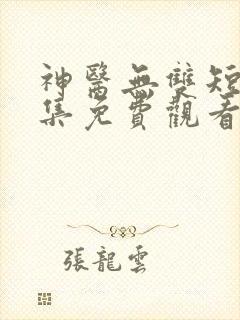 神醫無雙短
集免費觀看
張龍雲